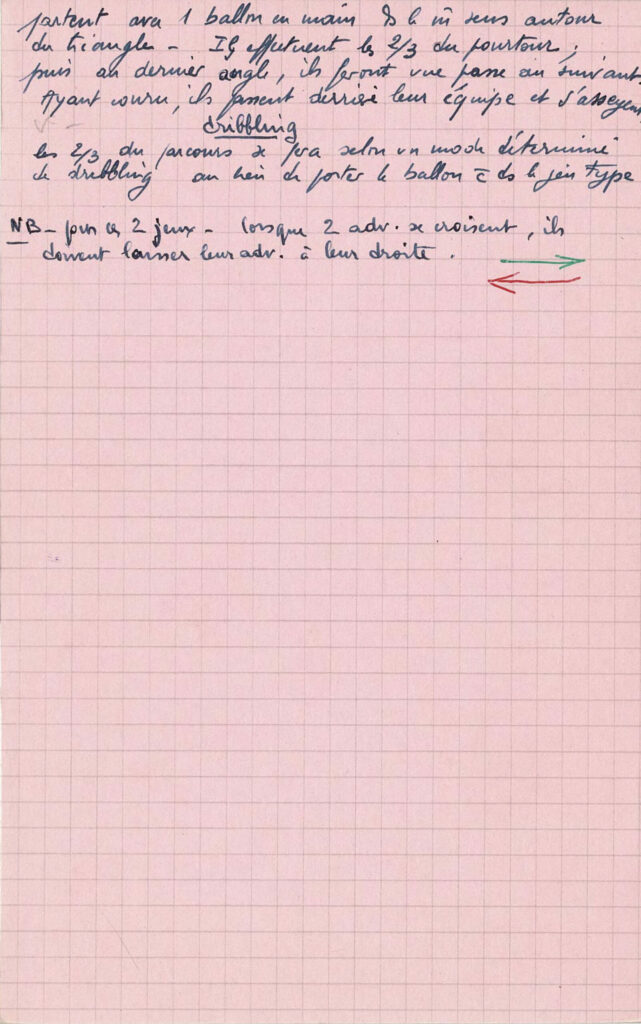 partent avec 1 ballon en main ds le m̂ sens autour
du triangle - Ils effectuent les 2/3 du pourtour ;
puis au dernier angle, ils feront une passe au suivant.
Ayant couru, ils passent derrière leur équipe et s'asseyent
dribbling
les 2/3 du parcours se fera selon un mode déterminé
de dribbling au lieu de porter le ballon c̄ ds le jeu type
NB - pour ces 2 jeux - lorsque 2 adv. se croisent, ils
doivent laisser leur adv. à leur droite.